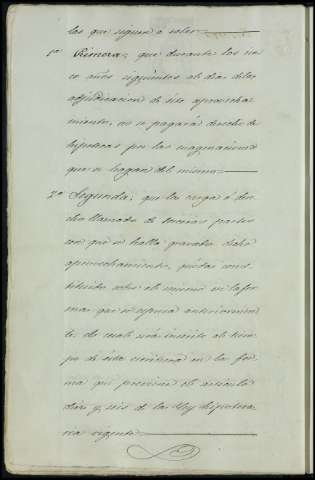 las que siguen á saber
1ª Primera; que durante los cin
co años siguientes al dia de la
adjudicacion de este aprovecha
miento, no se pagará derecho de
hipotecas por las enagenaciones
que se hagan del mismo
2ª Segunda; que la carga ó dere
cho llamado de tercias partes
con que se halla gravado dicho
aprovechamiento, quedan cons
tituido sobre el mismo en la for
ma que se espresa anteriormen
te el cual será inscrito al tiem
po de esta escritura en la for
ma que previene el artículo
diez y seis de la Ley Hipoteca
ria vigente